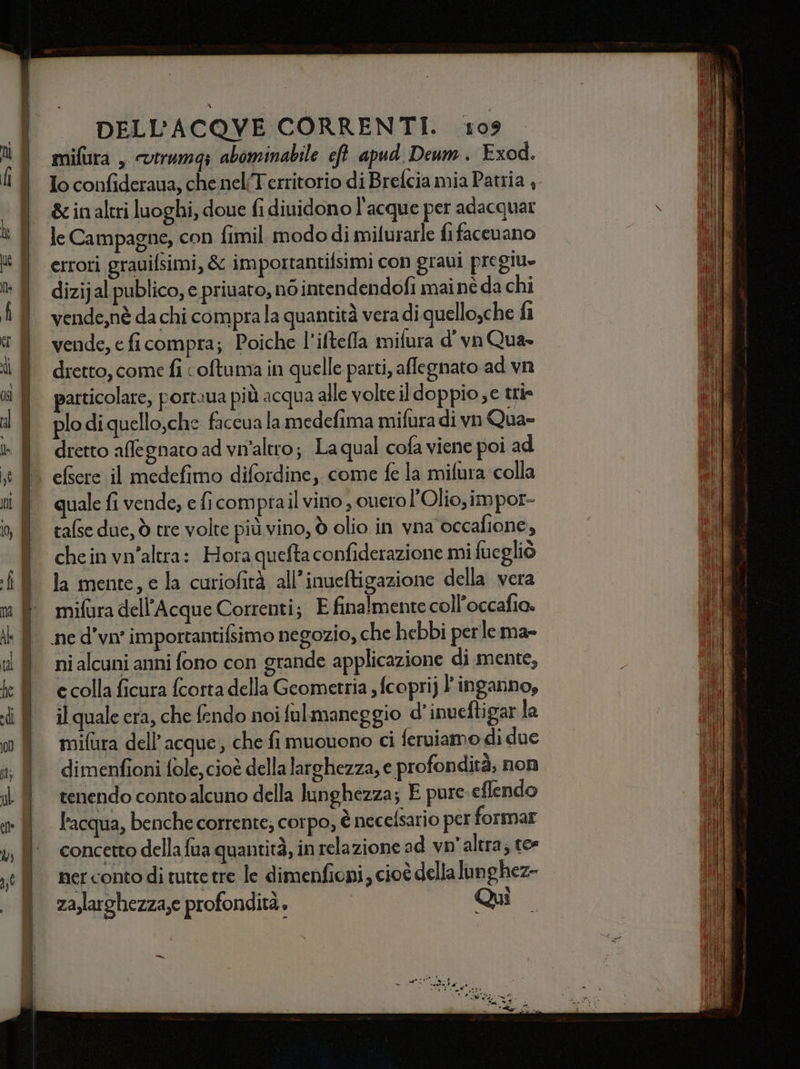 DELL'ACQVE CORRENTI. 109
misura, vtrumq; abominabile est apud Deum. Exod.
Io consideraua, che nel Territorio di Brescia mia Patria,
& in altri luoghi, doue si diuidono l'acque per adacquar
le Campagne, con simil modo di misurarle si faceuano
errori grauissimi, & importantissimi con graui pregiu-
dizij al publico, e priuato, nō intendendosi mai nè da chi
vende, nè da chi compra la quantità vera di quello, che si
vende, e si compra; Poiche l'istessa misura d'vn Qua-
dretto, come si costuma in quelle parti, assegnato ad vn
particolare, portaua più acqua alle volte il doppio, e tri-
plo di quello, che faceua la medesima misura di vn Qua-
dretto assegnato ad vn'altro; La qual cosa viene poi ad
essere il medesimo disordine, come se la misura colla
quale si vende, e si compra il vino, ouero l'Olio, impor-
tasse due, ò tre volte più vino, ò olio in vna occasione,
che in vn'altra: Hora questa considerazione mi suegliò
la mente, e la curiosità all'inuestigazione della vera
misura dell'Acque Correnti; E finalmente coll'occasio-
ne d'vn' importantissimo negozio, che hebbi per le ma-
ni alcuni anni sono con grande applicazione di mente,
e colla sicura scorta della Geometria, scoprij l'inganno,
il quale era, che sendo noi sul maneggio d'inuestigar la
misura dell'acque, che si muouono ci seruiamo di due
dimensioni sole, cioè della larghezza, e profondità, non
tenendo conto alcuno della lunghezza; E pure essendo
l'acqua, benche corrente, corpo, è necessario per formar
concetto della sua quantità, in relazione ad vn'altra, te-
ner conto di tutte tre le dimensioni, cioè della lunghez-
za, larghezza, e profondità.
Qui